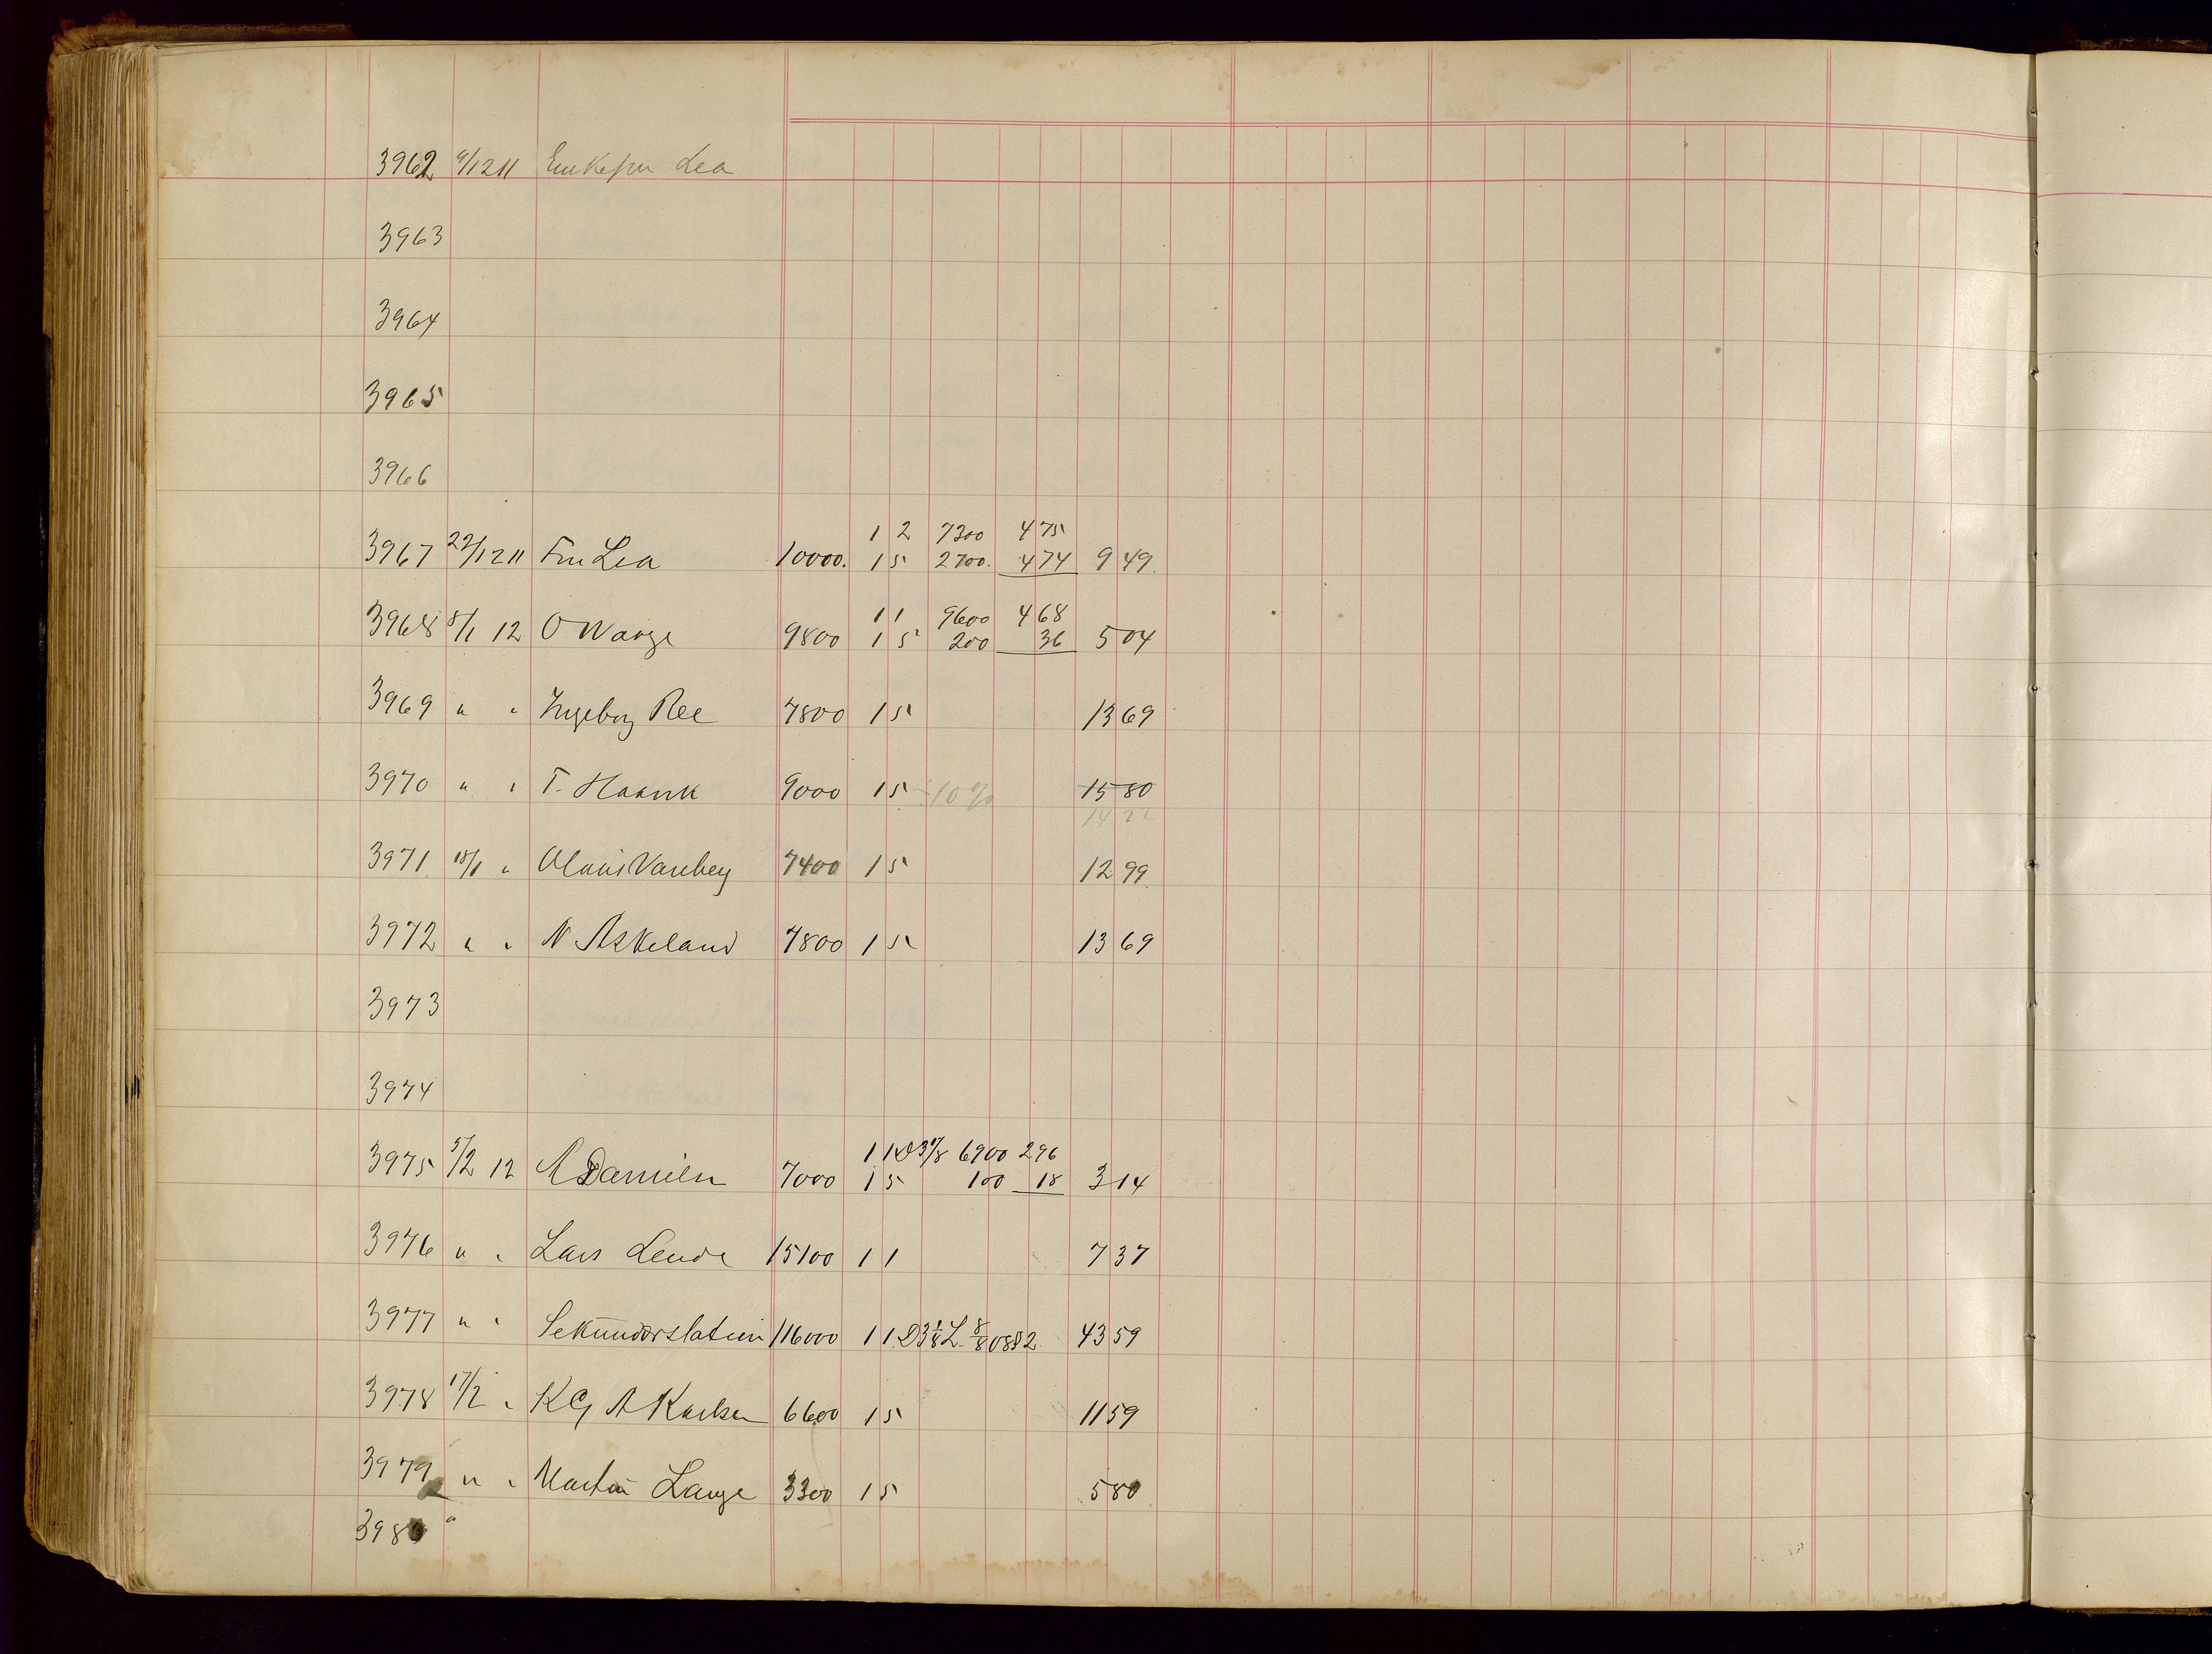 3962 9/12 11 Enkefru Lea
3963
3964
3965
3966
1 2 7300 4 75
3967 22/12 11 Fru Lea 10000. 1 5 2700. 4 74 9 49.
1 1 9600 4 68
3968 8/1 12 O Warge 9800 1 5 200 36 5 04
3969 " " Ingeborg Ree 7800 1 5 13 69
3970 " " T. Haank 9000 1 5 10% 15 80
14 22
3971 18/1 " Olaus Vareberg 7400 1 5 12 99
3972 " " N Askeland 7800 1 5 13 69
3973
3974
1 1 D 3 1/8 6900 2 96
3975 5/2 12 A Danieln 7000 1 5 100 18 3 14
3976 " " Lars Lende 15100 1 1 7 37
3977 " " Sekundærstation 116000 1 1 D 3 1/8 L. 8/8 0882 43 59
3978 17/2 " K G A Karlsen 6600 1 5 11 59
3979 " " Martin Lange 3300 1 5 5 80
3980 "